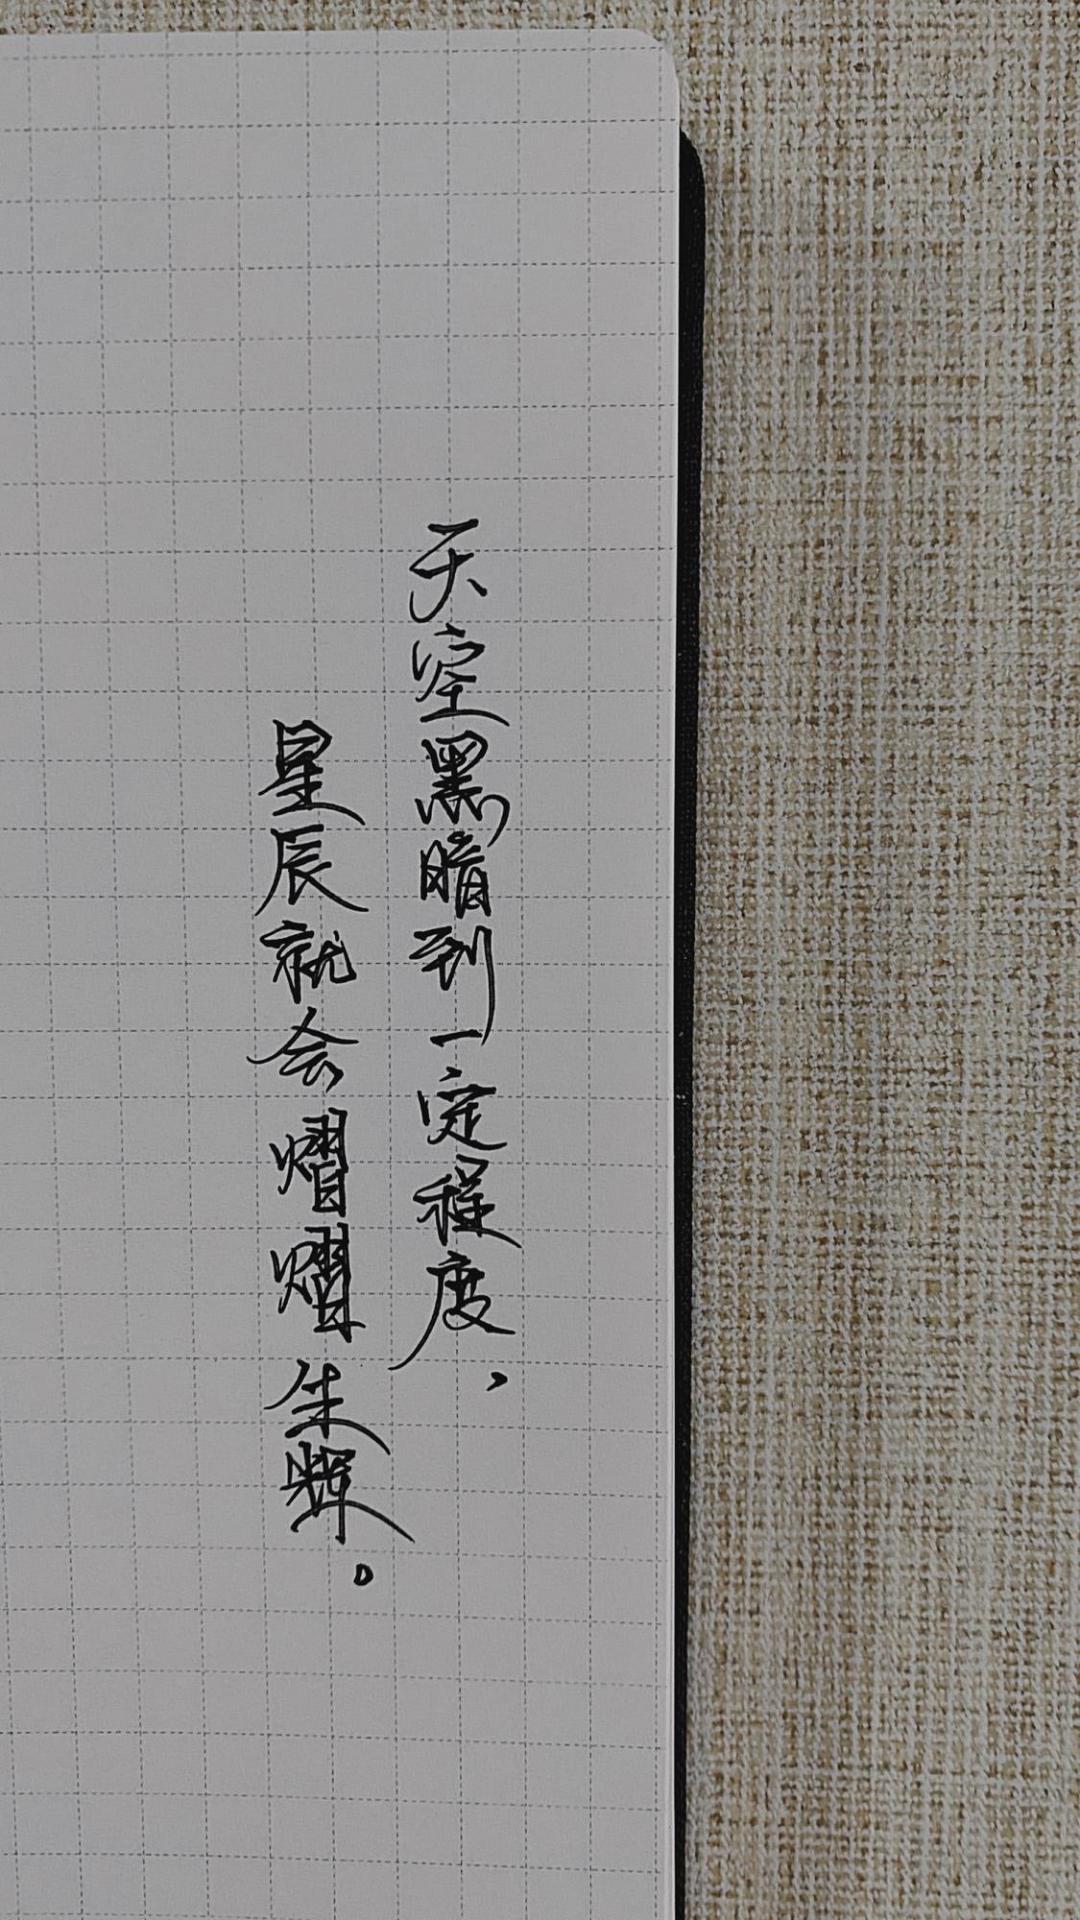 天空黑暗到一定程度，
星辰就会熠熠生辉。